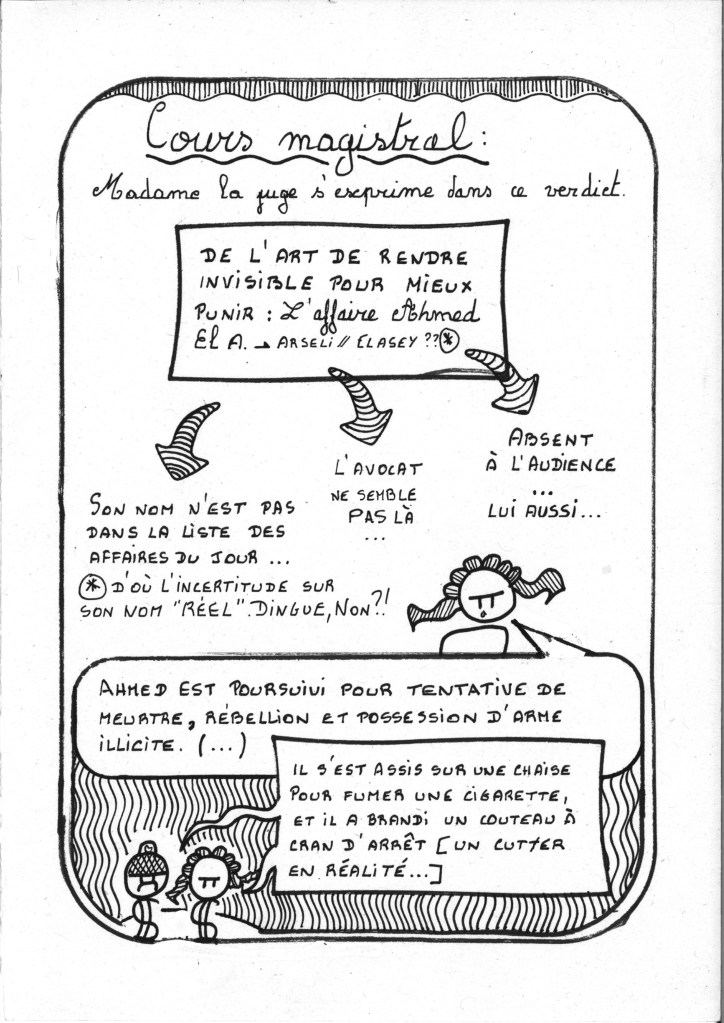 Cours magistral :
Madame la juge s'exprime dans ce verdict.
DE L'ART DE RENDRE
INVISIBLE POUR MIEUX
PUNIR : L'affaire Ahmed
El A. → ARSELI // ELASEY ?? *
SON NOM N'EST PAS
DANS LA LISTE DES
AFFAIRES DU JOUR ...
* D'OÙ L'INCERTITUDE SUR
SON NOM "RÉEL". DINGUE, NON ?!
L'AVOCAT
NE SEMBLE
PAS LÀ
...
ABSENT
À L'AUDIENCE
...
LUI AUSSI...
AHMED EST POURSUIVI POUR TENTATIVE DE
MEURTRE, RÉBELLION ET POSSESSION D'ARME
ILLICITE. (...)
IL S'EST ASSIS SUR UNE CHAISE
POUR FUMER UNE CIGARETTE,
ET IL A BRANDI UN COUTEAU À
CRAN D'ARRÊT [UN CUTTER
EN RÉALITÉ...]